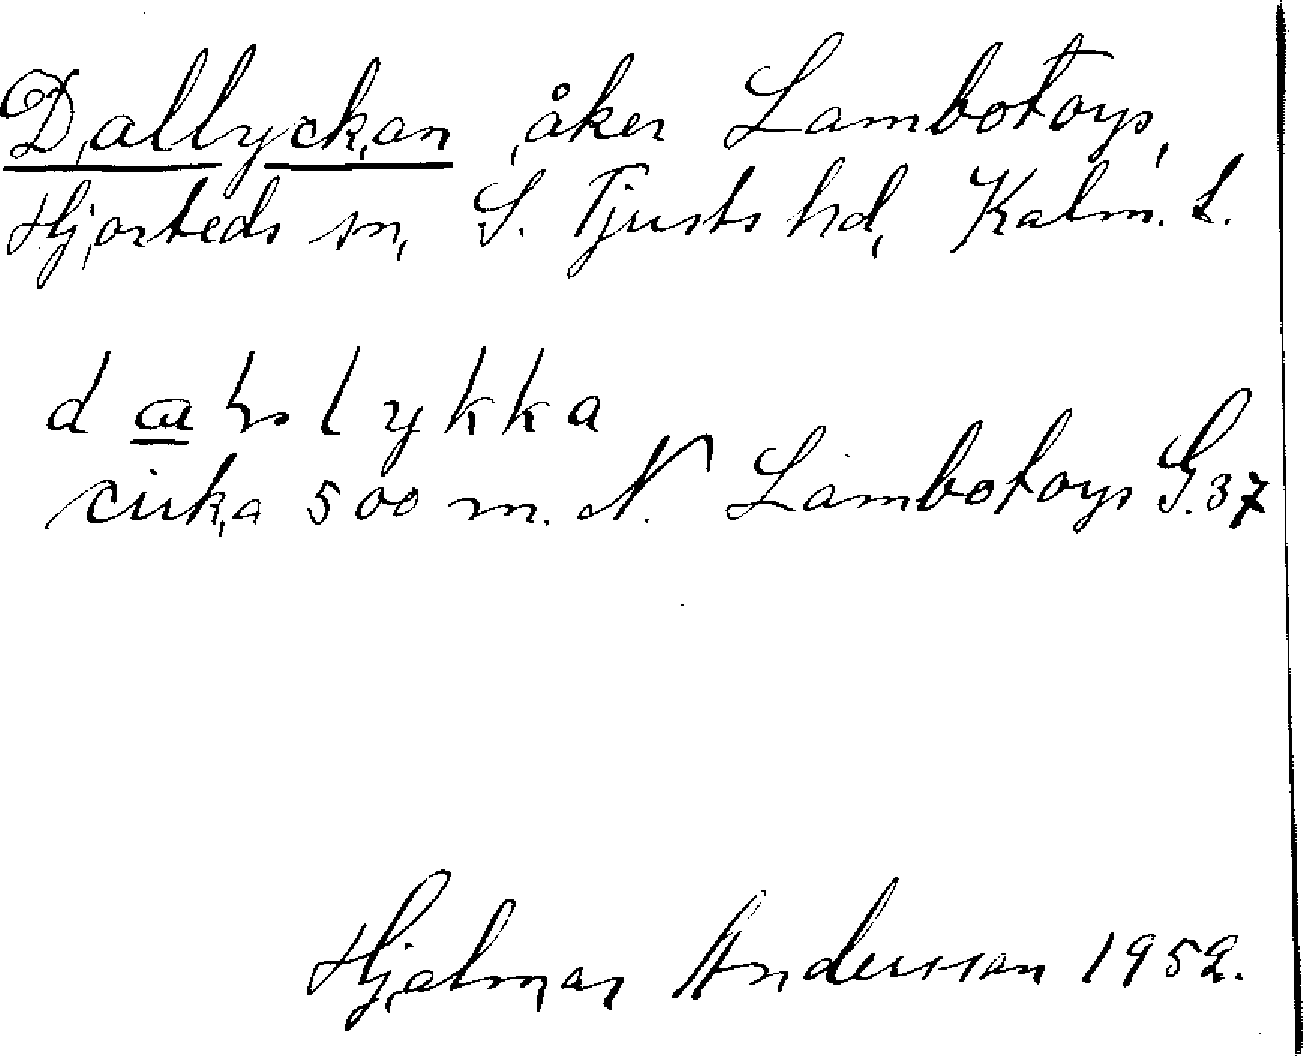 Dallyckan, åker Lambotorp,
Hjorteds sn, S. Tjusts hd, Kalm. L.
cirka 500 m. N. Lambotorp G. 37
Hjalmar Andersson 1952.